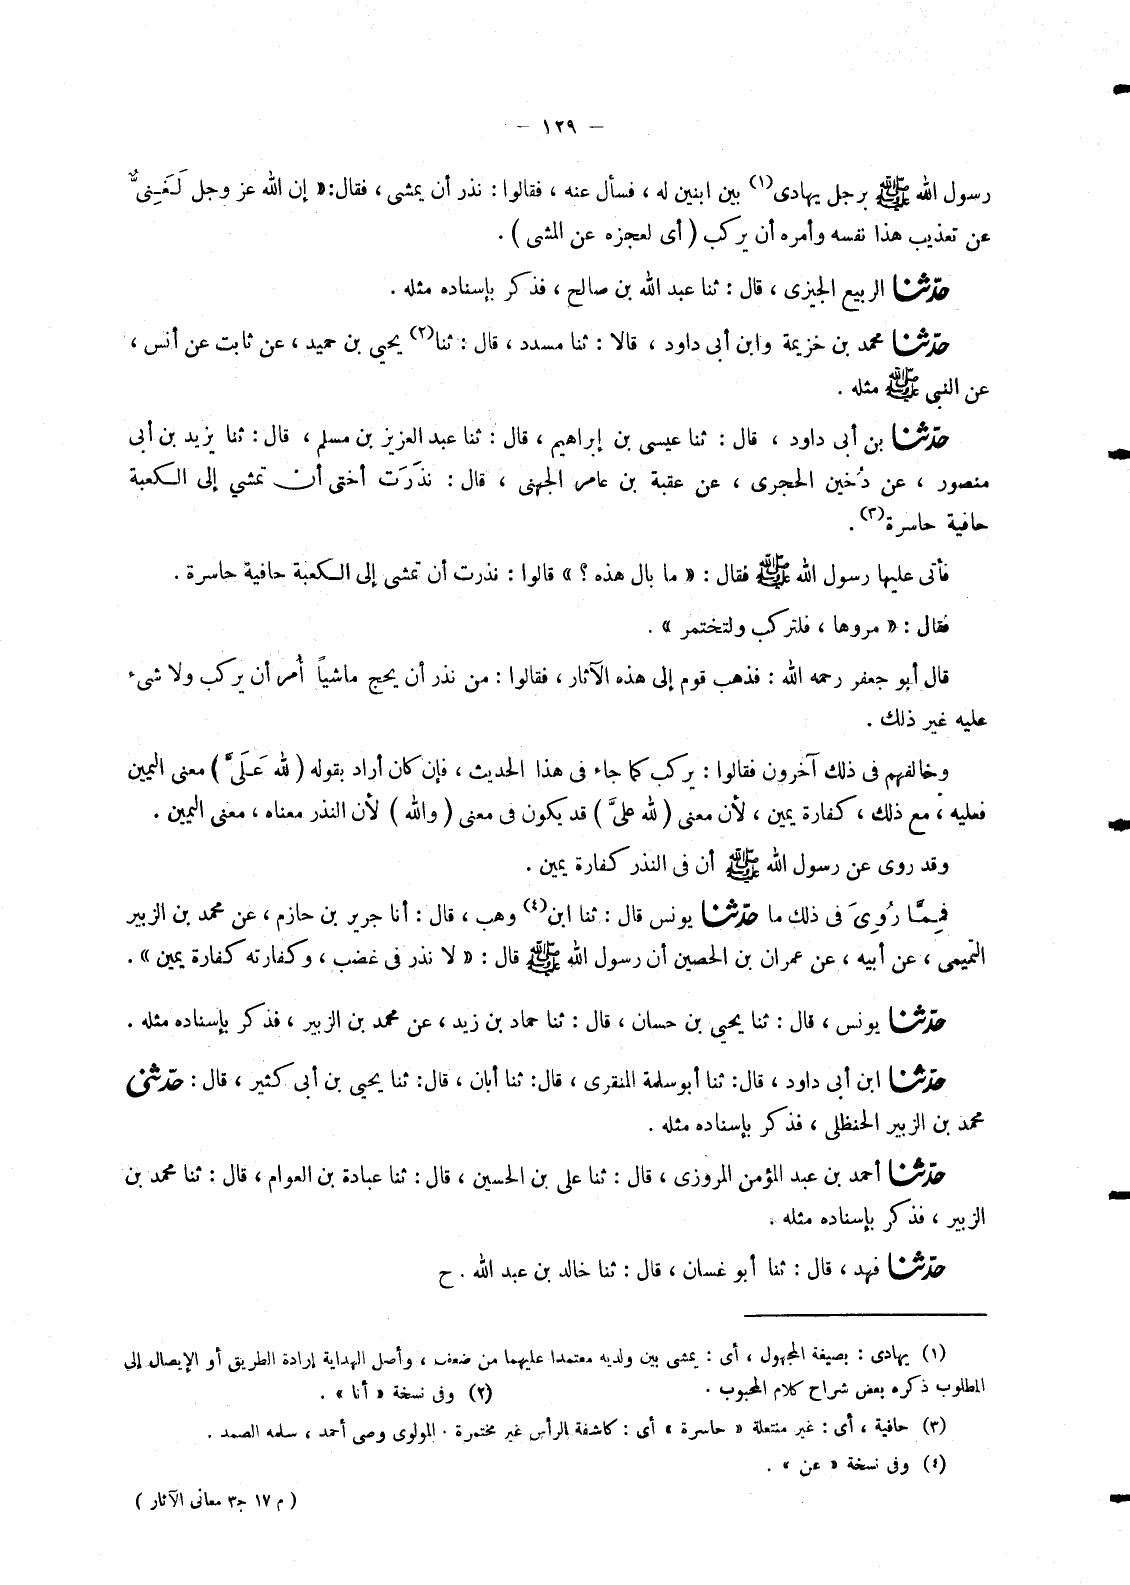 – ١٢٩ –
رسول الله ﷺ برجل يهادى(١) بين ابنين له ، فسأل عنه ، فقالوا : نذر أن يمشى ، فقال: « إن الله عز وجل لَغَنِىٌّ
عن تعذيب هذا نفسه وأمره أن يركب ( أى لعجزه عن المشى ) .
حدّثنا الربيع الجيزى ، قال : ثنا عبد الله بن صالح ، فذكر بإسناده مثله .
حدّثنا محمد بن خزيمة وابن أبى داود ، قالا : ثنا مسدد ، قال : ثنا(٢) يحيى بن حميد ، عن ثابت عن أنس ،
عن النبى ﷺ مثله .
حدّثنا بن أبى داود ، قال : ثنا عيسى بن إبراهيم ، قال : ثنا عبد العزيز بن مسلم ، قال : ثنا يزيد بن أبى
منصور ، عن دُخين الحجرى ، عن عقبة بن عامر الجهنى ، قال : نذَرَت أختى أن تمشي إلى الكعبة
حافية حاسرة(٣) .
فأتى عليها رسول الله ﷺ فقال : « ما بال هذه ؟ » قالوا : نذرت أن تمشى إلى الكعبة حافية حاسرة .
فقال : « مروها ، فلتركب ولتختمر » .
قال أبو جعفر رحمه الله : فذهب قوم إلى هذه الآثار ، فقالوا : من نذر أن يحج ماشياً أُمر أن يركب ولا شىء
عليه غير ذلك .
وخالفهم فى ذلك آخرون فقالوا : يركب كما جاء فى هذا الحديث ، فإن كان أراد بقوله ( لله عَلَىَّ ) معنى اليمين
فعليه ، مع ذلك ، كفارة يمين ، لأن معنى ( لله علىَّ ) قد يكون فى معنى ( والله ) لأن النذر معناه ، معنى اليمين .
وقد روى عن رسول الله ﷺ أن فى النذر كفارة يمين .
فمِمَّا رُوِىَ فى ذلك ما حدّثنا يونس قال : ثنا ابن(٤) وهب ، قال : أنا جرير بن حازم ، عن محمد بن الزبير
التميمى ، عن أبيه ، عن عمران بن الحصين أن رسول الله ﷺ قال : « لا نذر فى غضب ، وكفارته كفارة يمين » .
حدّثنا يونس ، قال : ثنا يحيى بن حسان ، قال : ثنا حماد بن زيد ، عن محمد بن الزبير ، فذكر بإسناده مثله .
حدّثنا ابن أبى داود ، قال: ثنا أبو سلمة المنقرى ، قال: ثنا أبان ، قال: ثنا يحيى بن أبى كثير ، قال : حدّثنى
محمد بن الزبير الحنظلى ، فذكر بإسناده مثله .
حدّثنا أحمد بن عبد المؤمن المروزى ، قال : ثنا على بن الحسين ، قال : ثنا عبادة بن العوام ، قال : ثنا محمد بن
الزبير ، فذكر بإسناده مثله .
حدّثنا فهد ، قال : ثنا أبو غسان ، قال : ثنا خالد بن عبد الله . ح
(١) يهادى : بصيغة المجهول ، أى : يمشى بين ولديه معتمدا عليهما من ضعف ، وأصل الهداية إرادة الطريق أو الإيصال إلى
المطلوب ذكره بعض شراح كلام المحبوب . (٢) وفى نسخة « أنا » .
(٣) حافية ، أى : غير منتعلة « حاسرة » أى : كاشفة الرأس غير مختمرة . المولوى وصى أحمد ، سلمه الصمد .
(٤) وفى نسخة « عن » .
( م ١٧ ج٣ معانى الآثار )